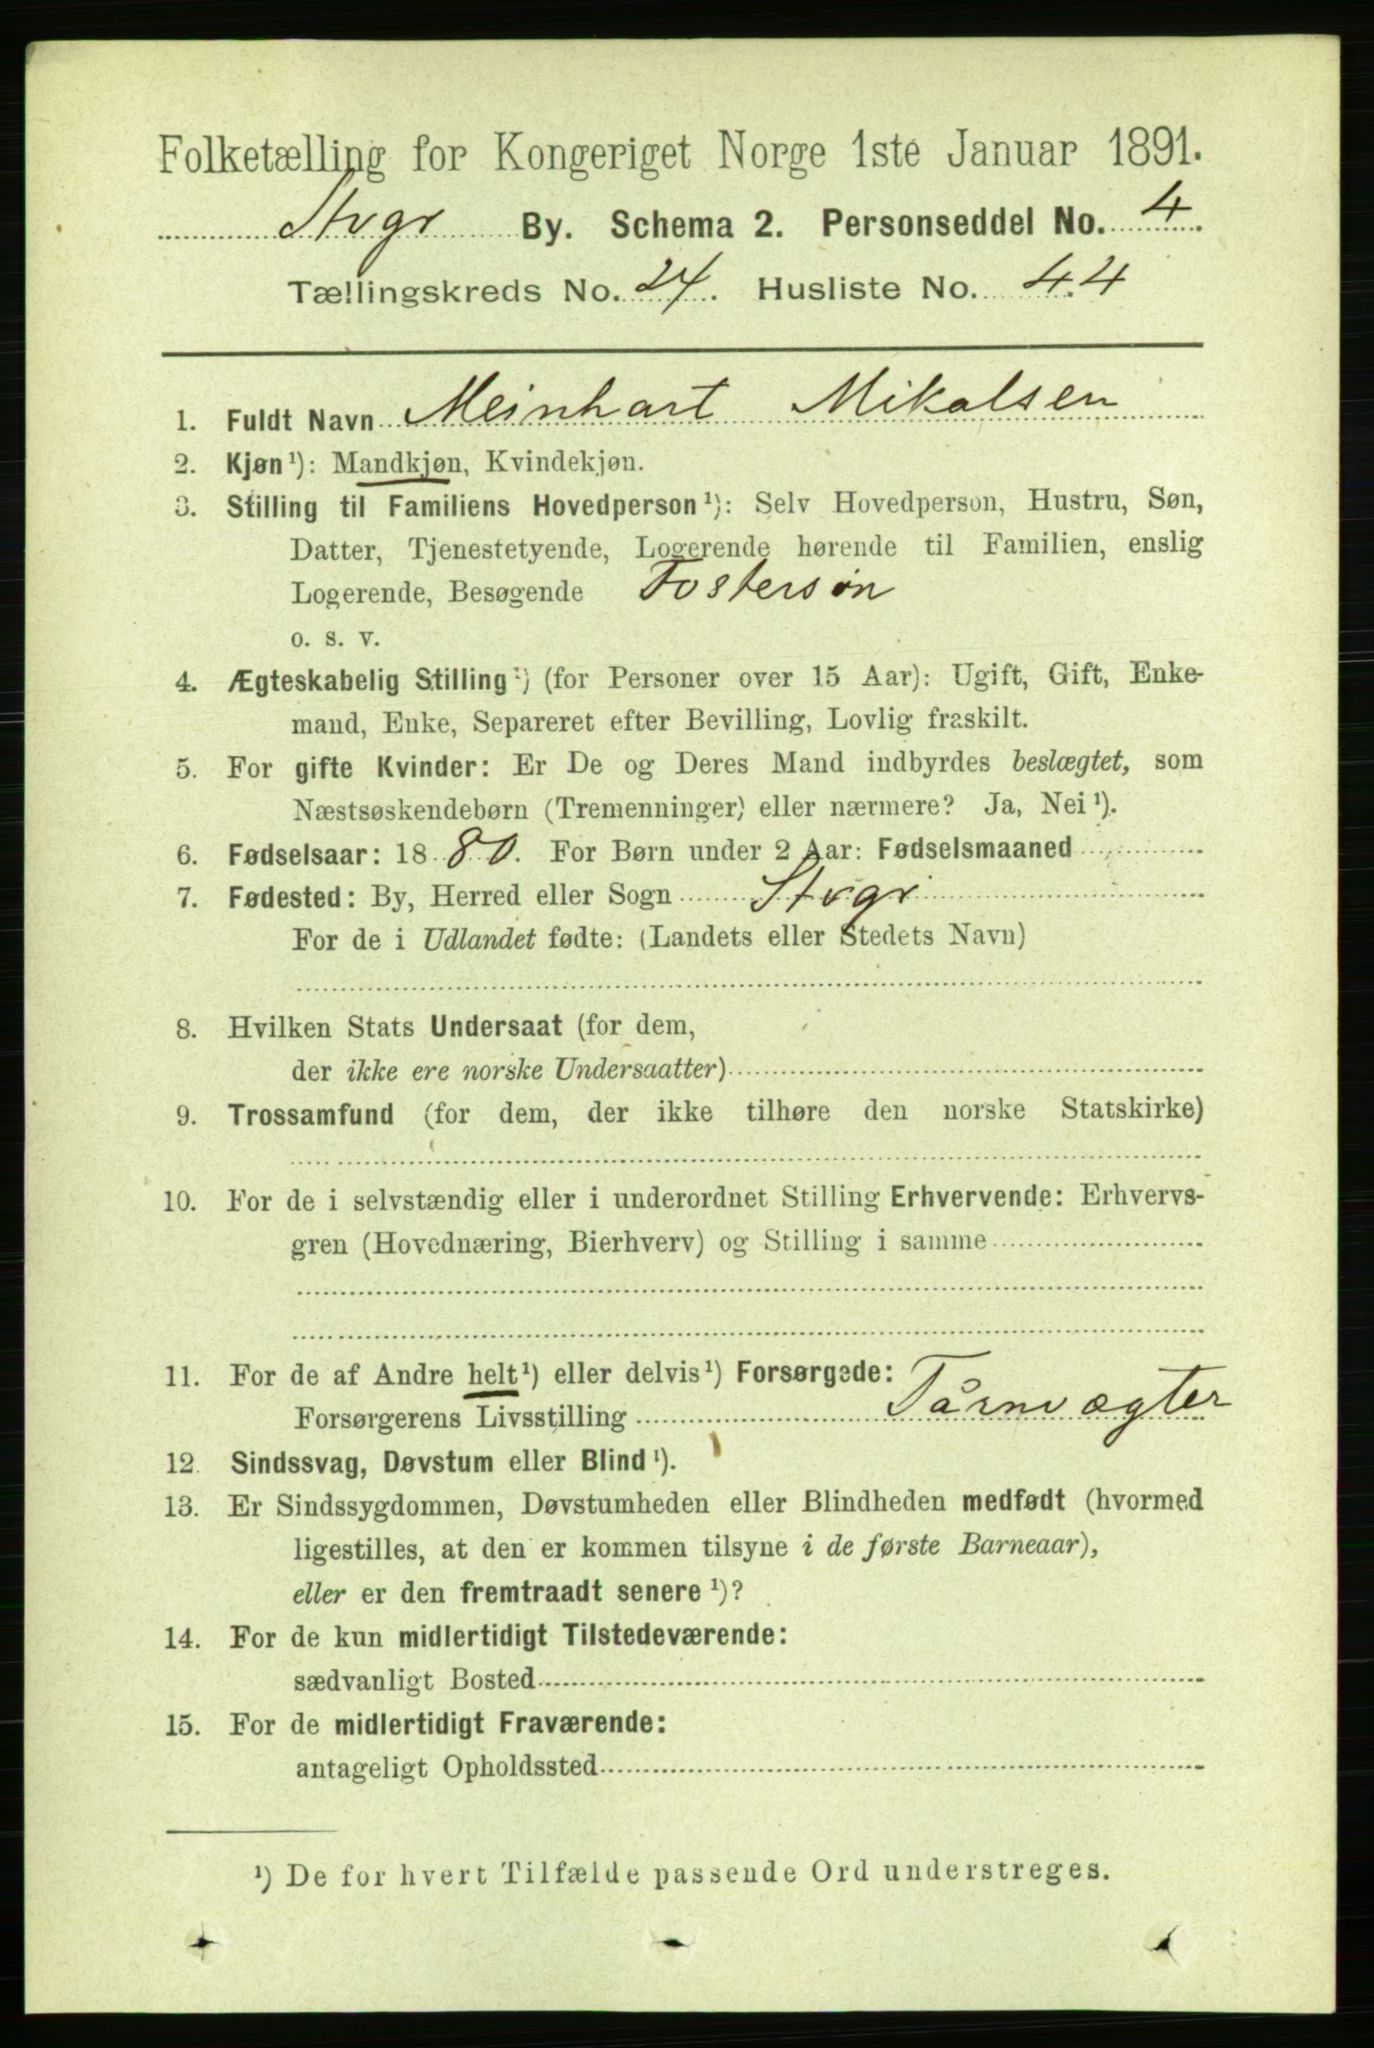 Folketælling for Kongeriget Norge 1ste Januar 1891.
Stvgr By. Schema 2. Personseddel No. 4.
Tællingskreds No. 24. Husliste No. 44
1. Fuldt Navn Meinhart Mikalsen
2. Kjøn¹): Mandkjøn, Kvindekjøn.
3. Stilling til Familiens Hovedperson¹): Selv Hovedperson, Hustru, Søn,
Datter, Tjenestetyende, Logerende hørende til Familien, enslig
Logerende, Besøgende Fostersøn
o. s. v.
4. Ægteskabelig Stilling¹) (for Personer over 15 Aar): Ugift, Gift, Enke-
mand, Enke, Separeret efter Bevilling, Lovlig fraskilt.
5. For gifte Kvinder: Er De og Deres Mand indbyrdes beslægtet, som
Næstsøskendebørn (Tremenninger) eller nærmere? Ja, Nei¹).
6. Fødselsaar: 1880. For Børn under 2 Aar: Fødselsmaaned
7. Fødested: By, Herred eller Sogn Stvgr
For de i Udlandet fødte: (Landets eller Stedets Navn)
8. Hvilken Stats Undersaat (for dem,
der ikke ere norske Undersaatter)
9. Trossamfund (for dem, der ikke tilhøre den norske Statskirke)
10. For de i selvstændig eller i underordnet Stilling Erhvervende: Erhvervs-
gren (Hovednæring, Bierhverv) og Stilling i samme
11. For de af Andre helt¹) eller delvis¹) Forsørgede:
Forsørgerens Livsstilling Tårnvægter
12. Sindssvag, Døvstum eller Blind¹).
13. Er Sindssygdommen, Døvstumheden eller Blindheden medfødt (hvormed
ligestilles, at den er kommen tilsyne i de første Barneaar),
eller er den fremtraadt senere¹)?
14. For de kun midlertidigt Tilstedeværende:
sædvanligt Bosted
15. For de midlertidigt Fraværende:
antageligt Opholdssted
¹) De for hvert Tilfælde passende Ord understreges.